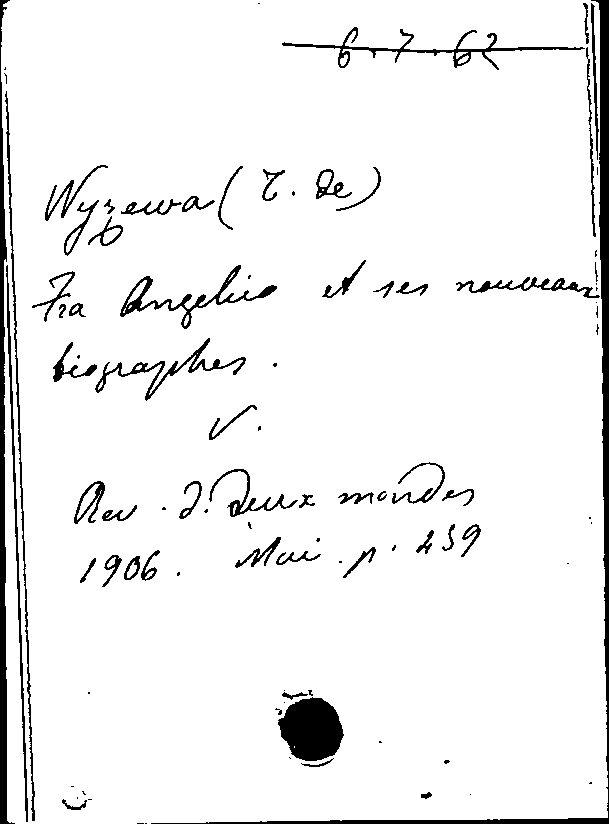 6.7.62
Wyzewa (T. de)
Fra Angelico et ses nouveaux
biographes.
V.
Rev. d. Deux mondes
1906. Mai. p. 459